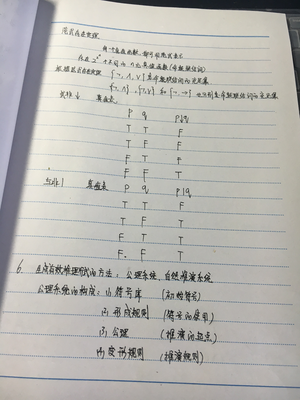 范式存在定理
每一真值函数,都可由范式表示
存在 2^2ⁿ 个不同的 n 元真值函数(命题联结词)
根据范式存在定理 {¬,∧,∨} 是命题联结词的完全集
{¬,∧},{¬,∨} 和 {¬,→} 也分别是命题联结词的完全集
或非↓ 真值表
p q p↓q
T T F
T F F
F T F
F F T
与非| 真值表
p q p|q
T T F
T F T
F T T
F. F T
6. 生成有效推理形式的方法:公理系统、自然推演系统
公理系统的构成:(1) 符号库 (初始符号)
(2) 形成规则 (符号的使用)
(3) 公理 (推演的起点)
(4) 变形规则 (推演规则)